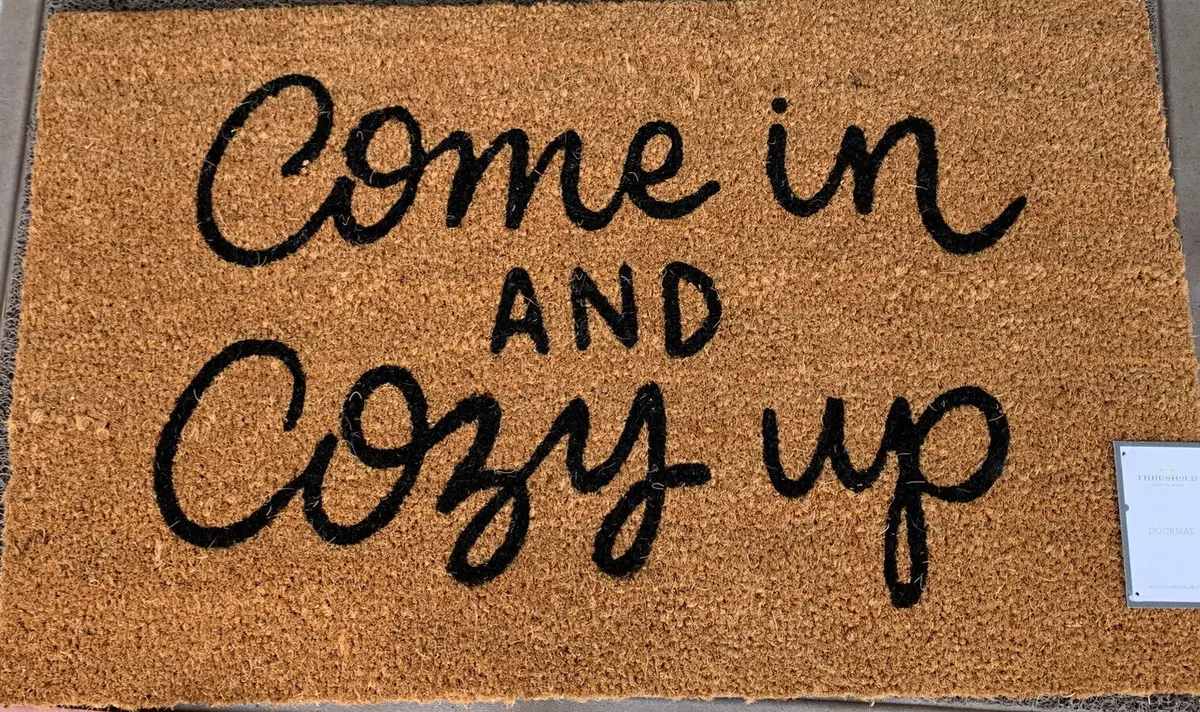 Come in
AND
Cozy up
THRESHOLD
DOORMAT